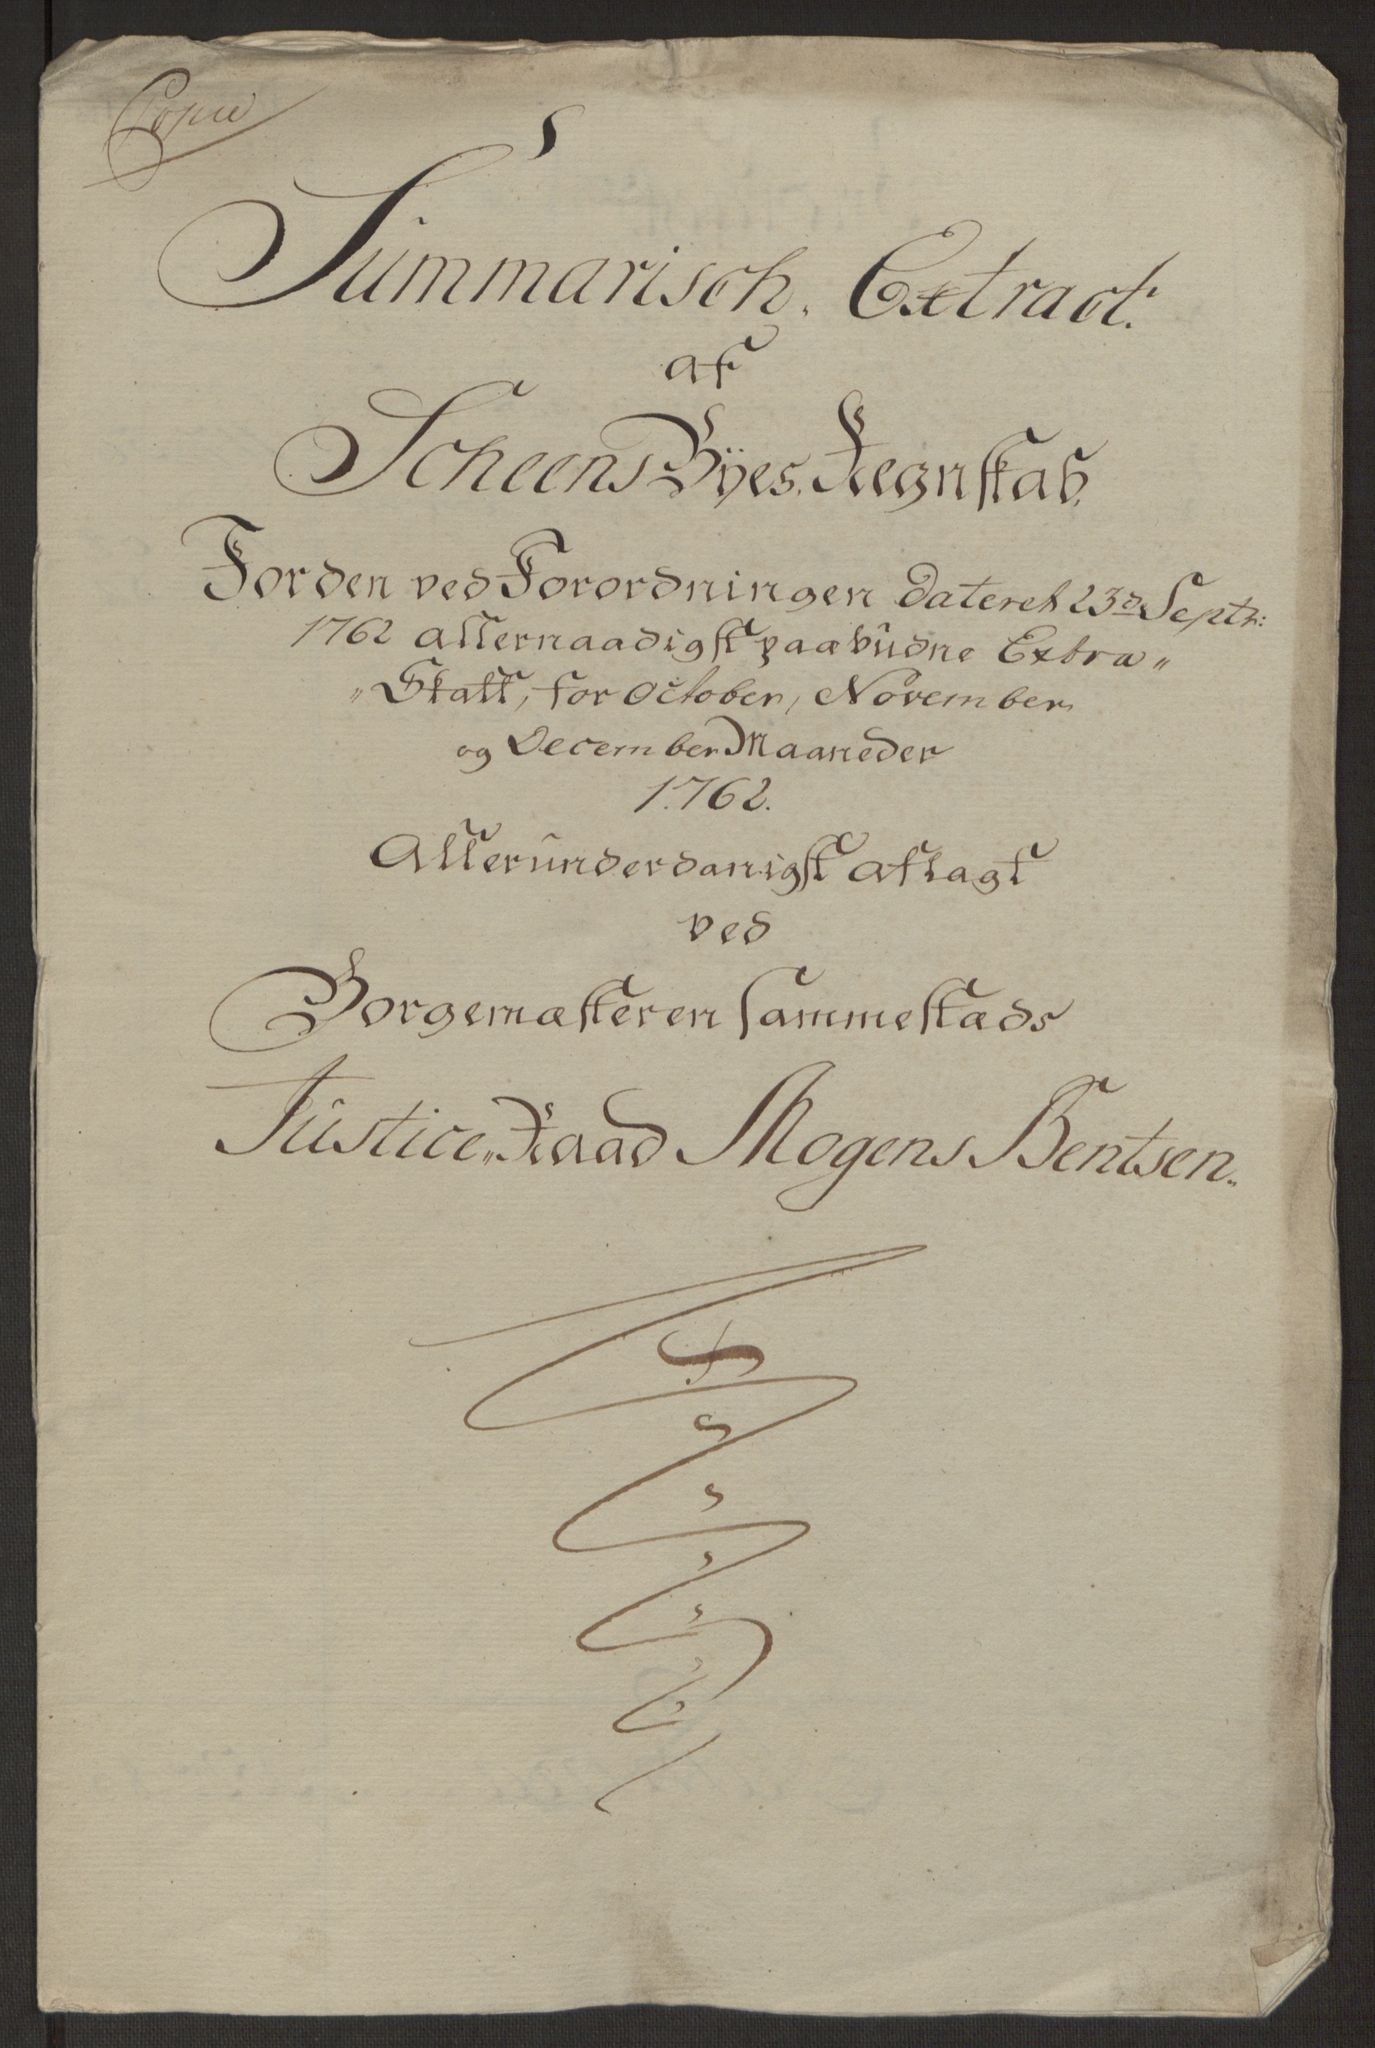 Copie
Summarisch. Extract.
af
Scheens Bÿes. Regnskab.
For den ved Forordningen Dateret 23d Septr:
1762 allernaadigst paabudne Extra„
„Skatt, for October, November
og December Maaneder
1762.
Allerunderdanigst aflagt
ved
Borgemesteren sammestæds
Justice„Raad Mogens Bentsen.